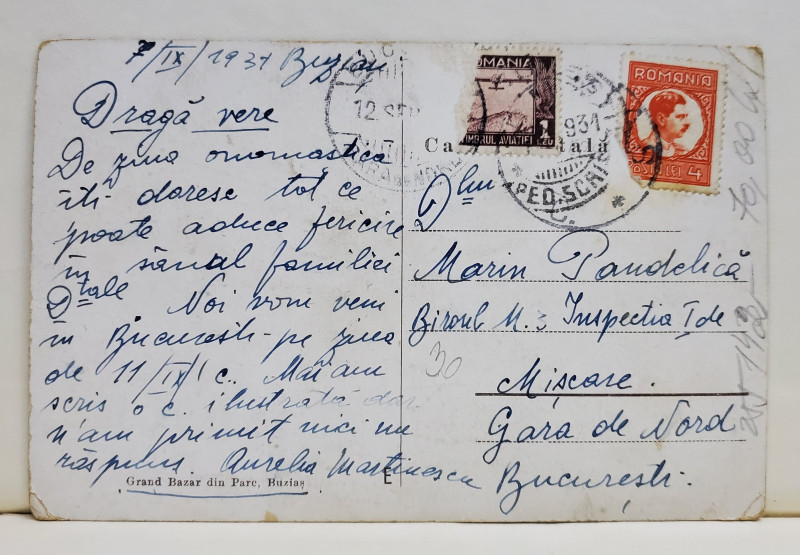 7/IX/1931 Buziaș
Dragă vere
De ziua onomastică
îți doresc tot ce
poate aduce fericire
în sânul familiei
Dtale Noi vom veni
în București pe ziua
de 11/IX/ c. Mai am
scris o c. ilustrată dar
n'am primit nici un
răspuns. Aurelia Martinescu
Grand Bazar din Parc, Buziaș
E
12 SEP
GARA DE NORD
ROMANIA
TIMBRUL AVIATIEI
1 LEU
Ca tală
931
PED. SCRIS
ROMANIA
POSTA LEI 4
Dlui
Marin Pandelică
Biroul M. : Inspecția I de
Mișcare.
Gara de Nord
București.
30